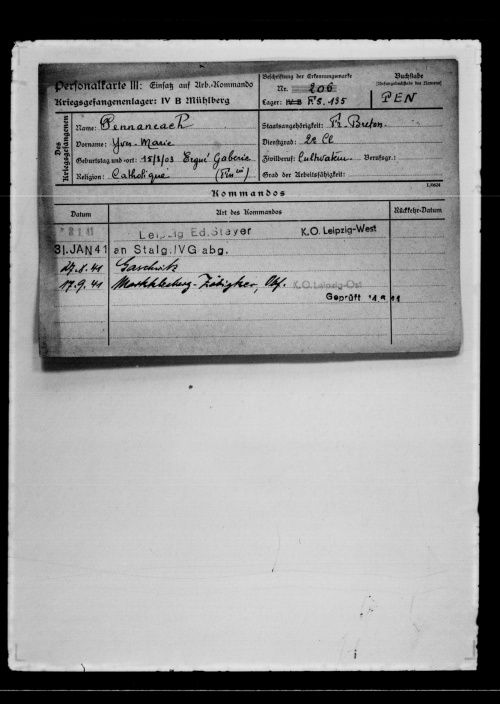 Personalkarte III: Einsatz auf Arb.-Kommando
Kriegsgefangenenlager: IV B Mühlberg
Beschriftung der Erkennungsmarke
Nr. 206
Lager: IV B F5.135
Buchstabe
PEN
Des Kriegsgefangenen
Name: Pennaneach
Vorname: Yves-Marie
Geburtstag und -ort: 15/3/03 Ergué Gaberic
Religion: Catholique
Staatsangehörigkeit: Fr-Breton.
Dienstgrad: 2e Cl
Zivilberuf: Cultivateur Berufsgr.:
Grad der Arbeitsfähigkeit:
Kommandos
Datum Art des Kommandos Rückkehr-Datum
Leipzig Ed. Steyer K.O. Leipzig-West
31. JAN 41 an Stalg. IV G abg.
27.8.41 Gaschwitz
17.9.41 Markkleeberg-Zöbigker, K.O. Leipzig-Ost
Geprüft